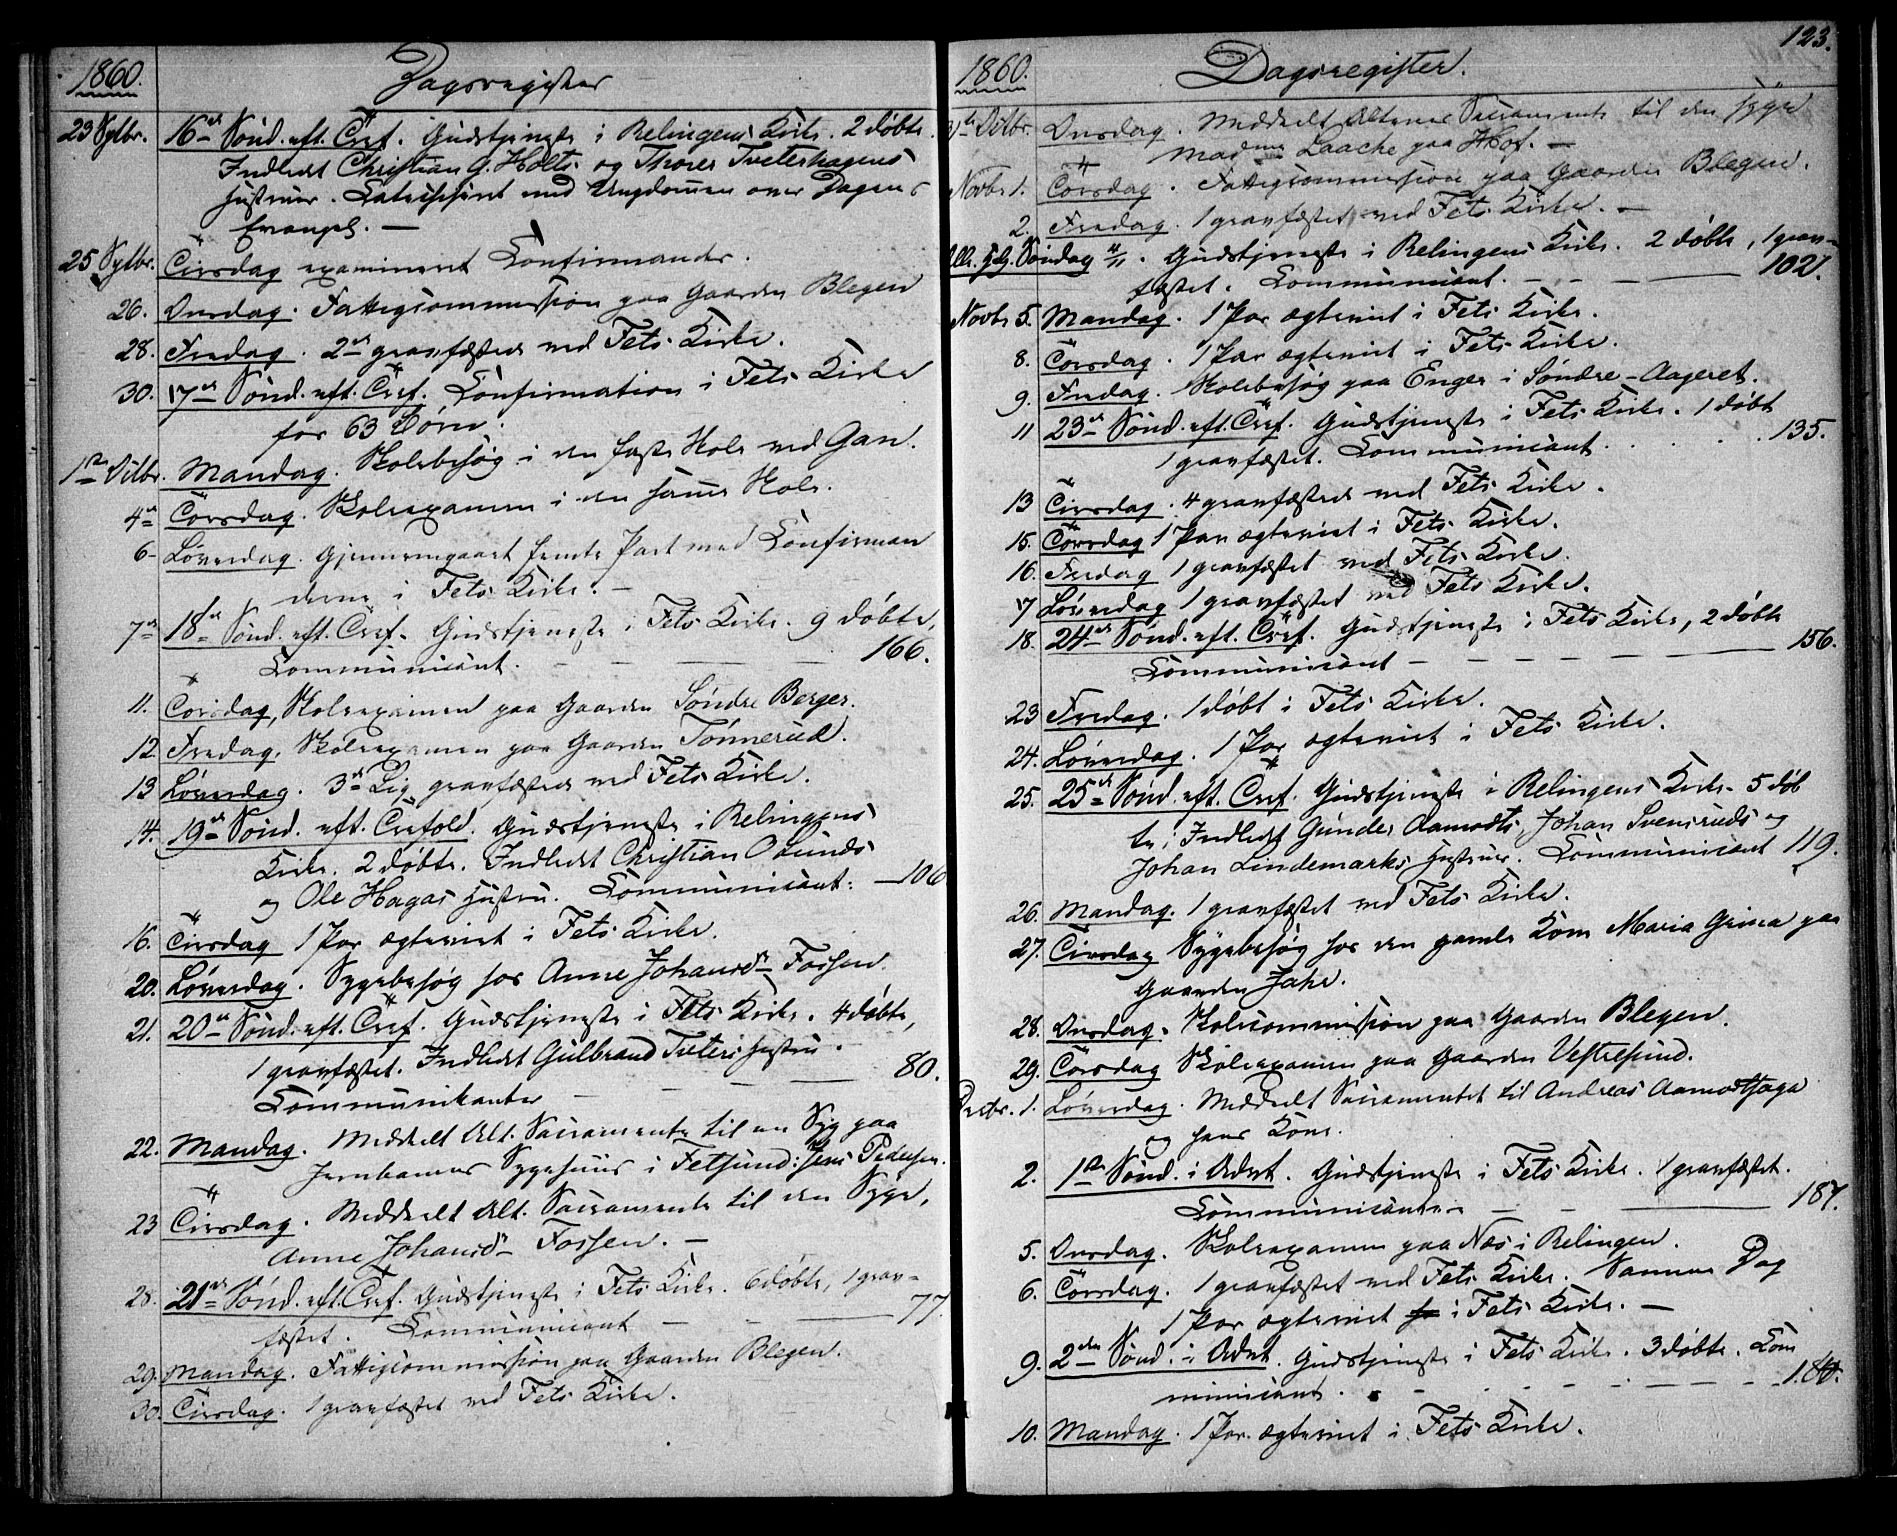 1860. Dagsregister
23 Septbr. 16de Sönd. eft. Tref. Gudstjeneste i Relingens Kirke. 2 döbte.
Indledt Christian G. Holts og Thorer Tveterhagens
Hustruer. Catechiseret med Ungdommen over Dagens
Evangel. —
25 Septbr. Tirsdag examineret Confirmander.
26. Onsdag. Fattigcommission paa Gaarden Blegen
28. Fredag. 2de gravfæstede ved Fets Kirke.
30. 17de Sönd. eft. Tref. Confirmation i Fets Kirke
for 63 Börn.
1ste Octbr. Mandag. Skolebesög i den faste Skole ved Gan.
4de Torsdag. Skoleexamen i den samme Skole.
6- Löverdag. Gjennemgaaet femte Part med Confirman
derne i Fets Kirke. —
7de 18de Sönd. eft. Tref. Gudstjeneste i Fets Kirke. 9 döbte,
Communicant. — — — 166.
11. Torsdag, Skoleexamen paa Gaarden Söndre Berger.
12. Fredag. Skoleexamen paa Gaarden Tönnerud.
13 Löverdag. 3de Lig gravfæstede ved Fets Kirke.
14. 19de Sönd. eft. Trefold. Gudstjeneste i Relingens
Kirke. 2 döbte. Indledt Christian Osunds
og Ole Hagas Hustru. Communicant: — 106
16. Tirsdag 1 Par ægteviet i Fets Kirke.
20. Löverdag. Sygebesög hos Anne Johansdr Fossen.
21. 20de Sönd. eft. Tref. Gudstjeneste i Fets Kirke. 4 döbte,
1 gravfæstet. Indledt Gulbrand Tveters Hustru.
Communikanter — — — 80.
22. Mandag. Meddeelt Alt. Sacramente til en Syg paa
Jernbanens Sygehuus i Fetsund: Jens Pedersen.
23 Tirsdag. Meddeelt Alt. Sacramente til den Syge,
Anne Johansdr Fossen. —
28. 21de Sönd. eft. Tref. Gudstjeneste i Fets Kirke. 6 döbte, 1 grav-
fæstet. Communicant — — — 77.
29. Mandag. Fattigcommission paa Gaarden Blegen.
30. Tirsdag. 1 gravfæstet ved Fets Kirke.
123.
1860. Dagsregister.
31te Octbr. Onsdag. Meddeelt Alterens Sacramente til den syge
Madme Laache paa Hof. —
Novbr 1. Torsdag. Fattigcommission paa Gaarden Blegen.
2. Fredag. 1 gravfæstet ved Fets Kirke. —
Alle. Hlg. Söndag 4/11. Gudstjeneste i Relingens Kirke. 2 döbte, 1 grav-
fæstet. Communicant. — — — 102.
Novbr 5. Mandag. 1 Par ægteviet i Fets Kirke.
8. Torsdag. 1 Par ægteviet i Fets Kirke.
9. Fredag. Skolebesög paa Enger i Söndre-Aageret.
11 23de Sönd. eft. Tref. Gudstjeneste i Fets Kirke. 1 döbt
1 gravfæstet. Communicant . . . . 135.
13 Tirsdag. 4 gravfæstede ved Fets Kirke.
15. Torsdag 1 Par ægteviet i Fets Kirke.
16. Fredag 1 gravfæstet ved Fets Kirke.
17 Löverdag 1 gravfæstet ved Fets Kirke.
18. 24de Sönd. eft. Tref. Gudstjeneste i Fets Kirke, 2 döbte
Communicant — — — 156.
23 Fredag. 1 döbt i Fets Kirke.
24. Löverdag. 1 Par ægteviet i Fets Kirke.
25. 25de Sönd. eft. Tref. Gudstjeneste i Relingens Kirke. 5 döb
te; Indledt Gunder Aamodts, Johan Svensruds og
Johan Lindemarks Hustruer. Communicant 119.
26. Mandag. 1 gravfæstet ved Fets Kirke.
27. Tirsdag Sygebesög hos den gamle Kone Maria Grina paa
Gaarden Jahr.
28. Onsdag. Skolecommission paa Gaarden Blegen.
29. Torsdag Skoleexamen paa Gaarden Vestresund.
Decbr. 1. Löverdag. Meddeelt Sacramentet til Andreas Aamodthaga
og hans Kone.
2. 1ste Sönd. i Advt. Gudstjeneste i Fets Kirke. 1 gravfæstet.
Communicanter — — — 187.
5. Onsdag. Skoleexamen paa Næs i Relingen.
6. Torsdag. 1 gravfæstet ved Fets Kirke. Samme Dag
1 Par ægteviet i Fets Kirke. —
9. 2den Sönd. i Advt. Gudstjeneste i Fets Kirke. 3 döbte. Com
municant. — — — 180.
10. Mandag. 1 Par ægteviet i Fets Kirke.